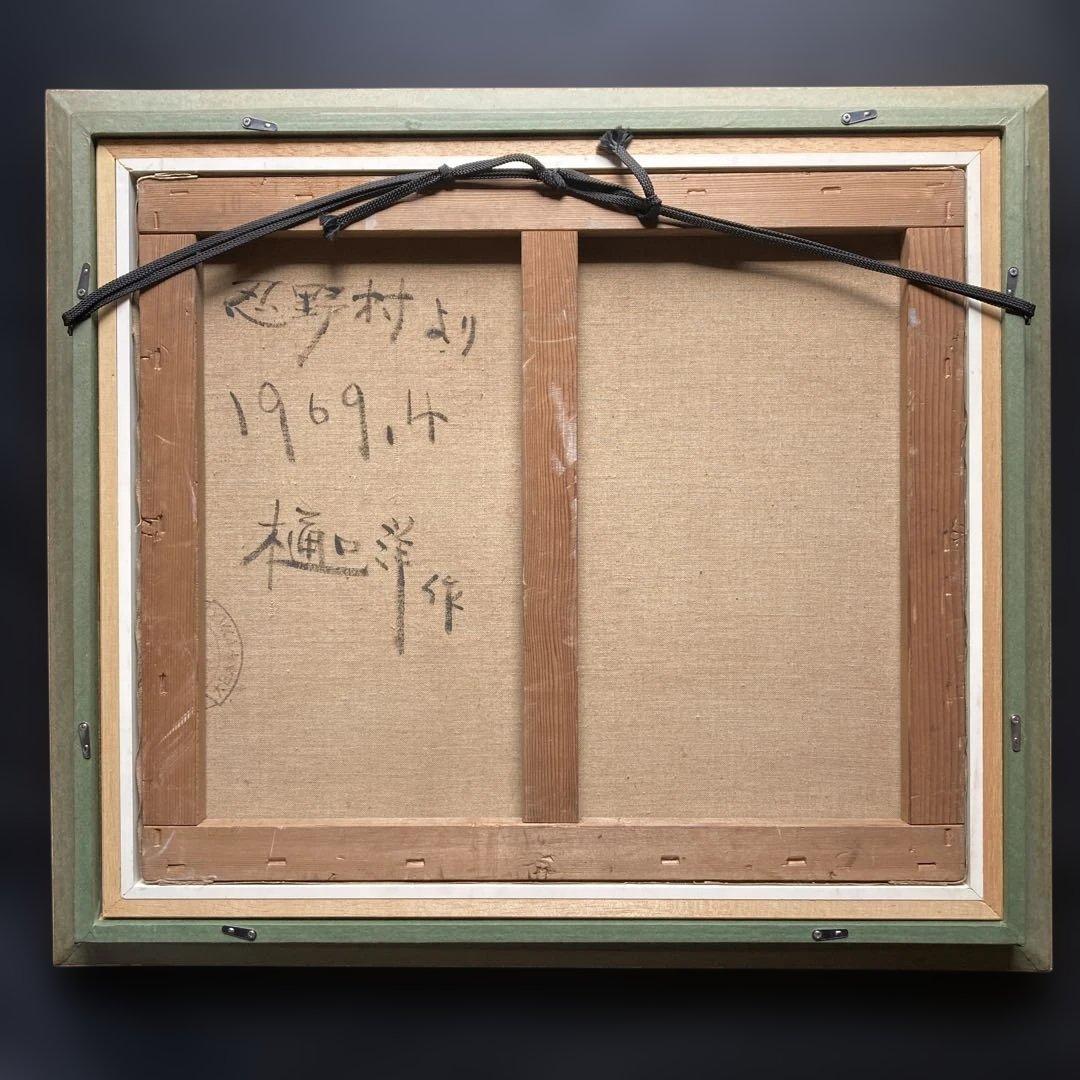 忍野村より
1969.4
樋口洋作